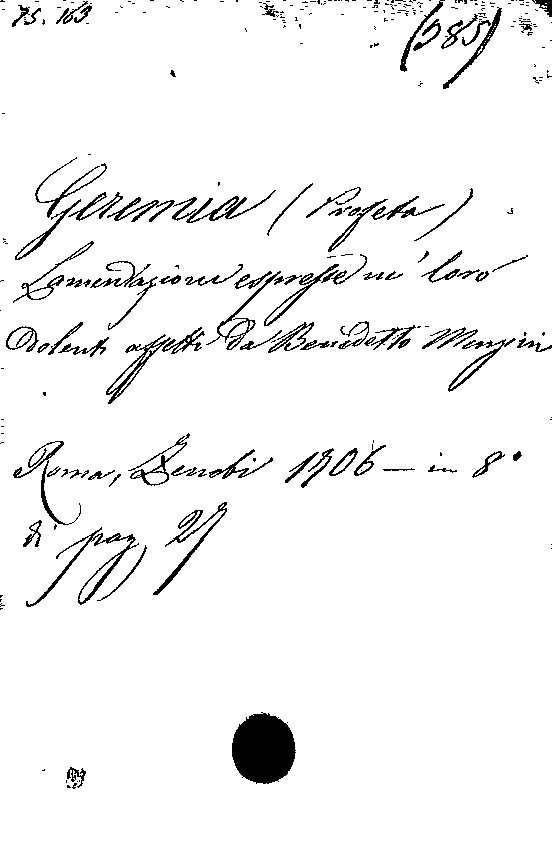 75. 163
(385)
Geremia (Profeta)
Lamentazioni espresse ne' loro
dolenti affetti da Benedetto Menzini
Roma, Zenobi 1706 — in 8°
di pag. 27